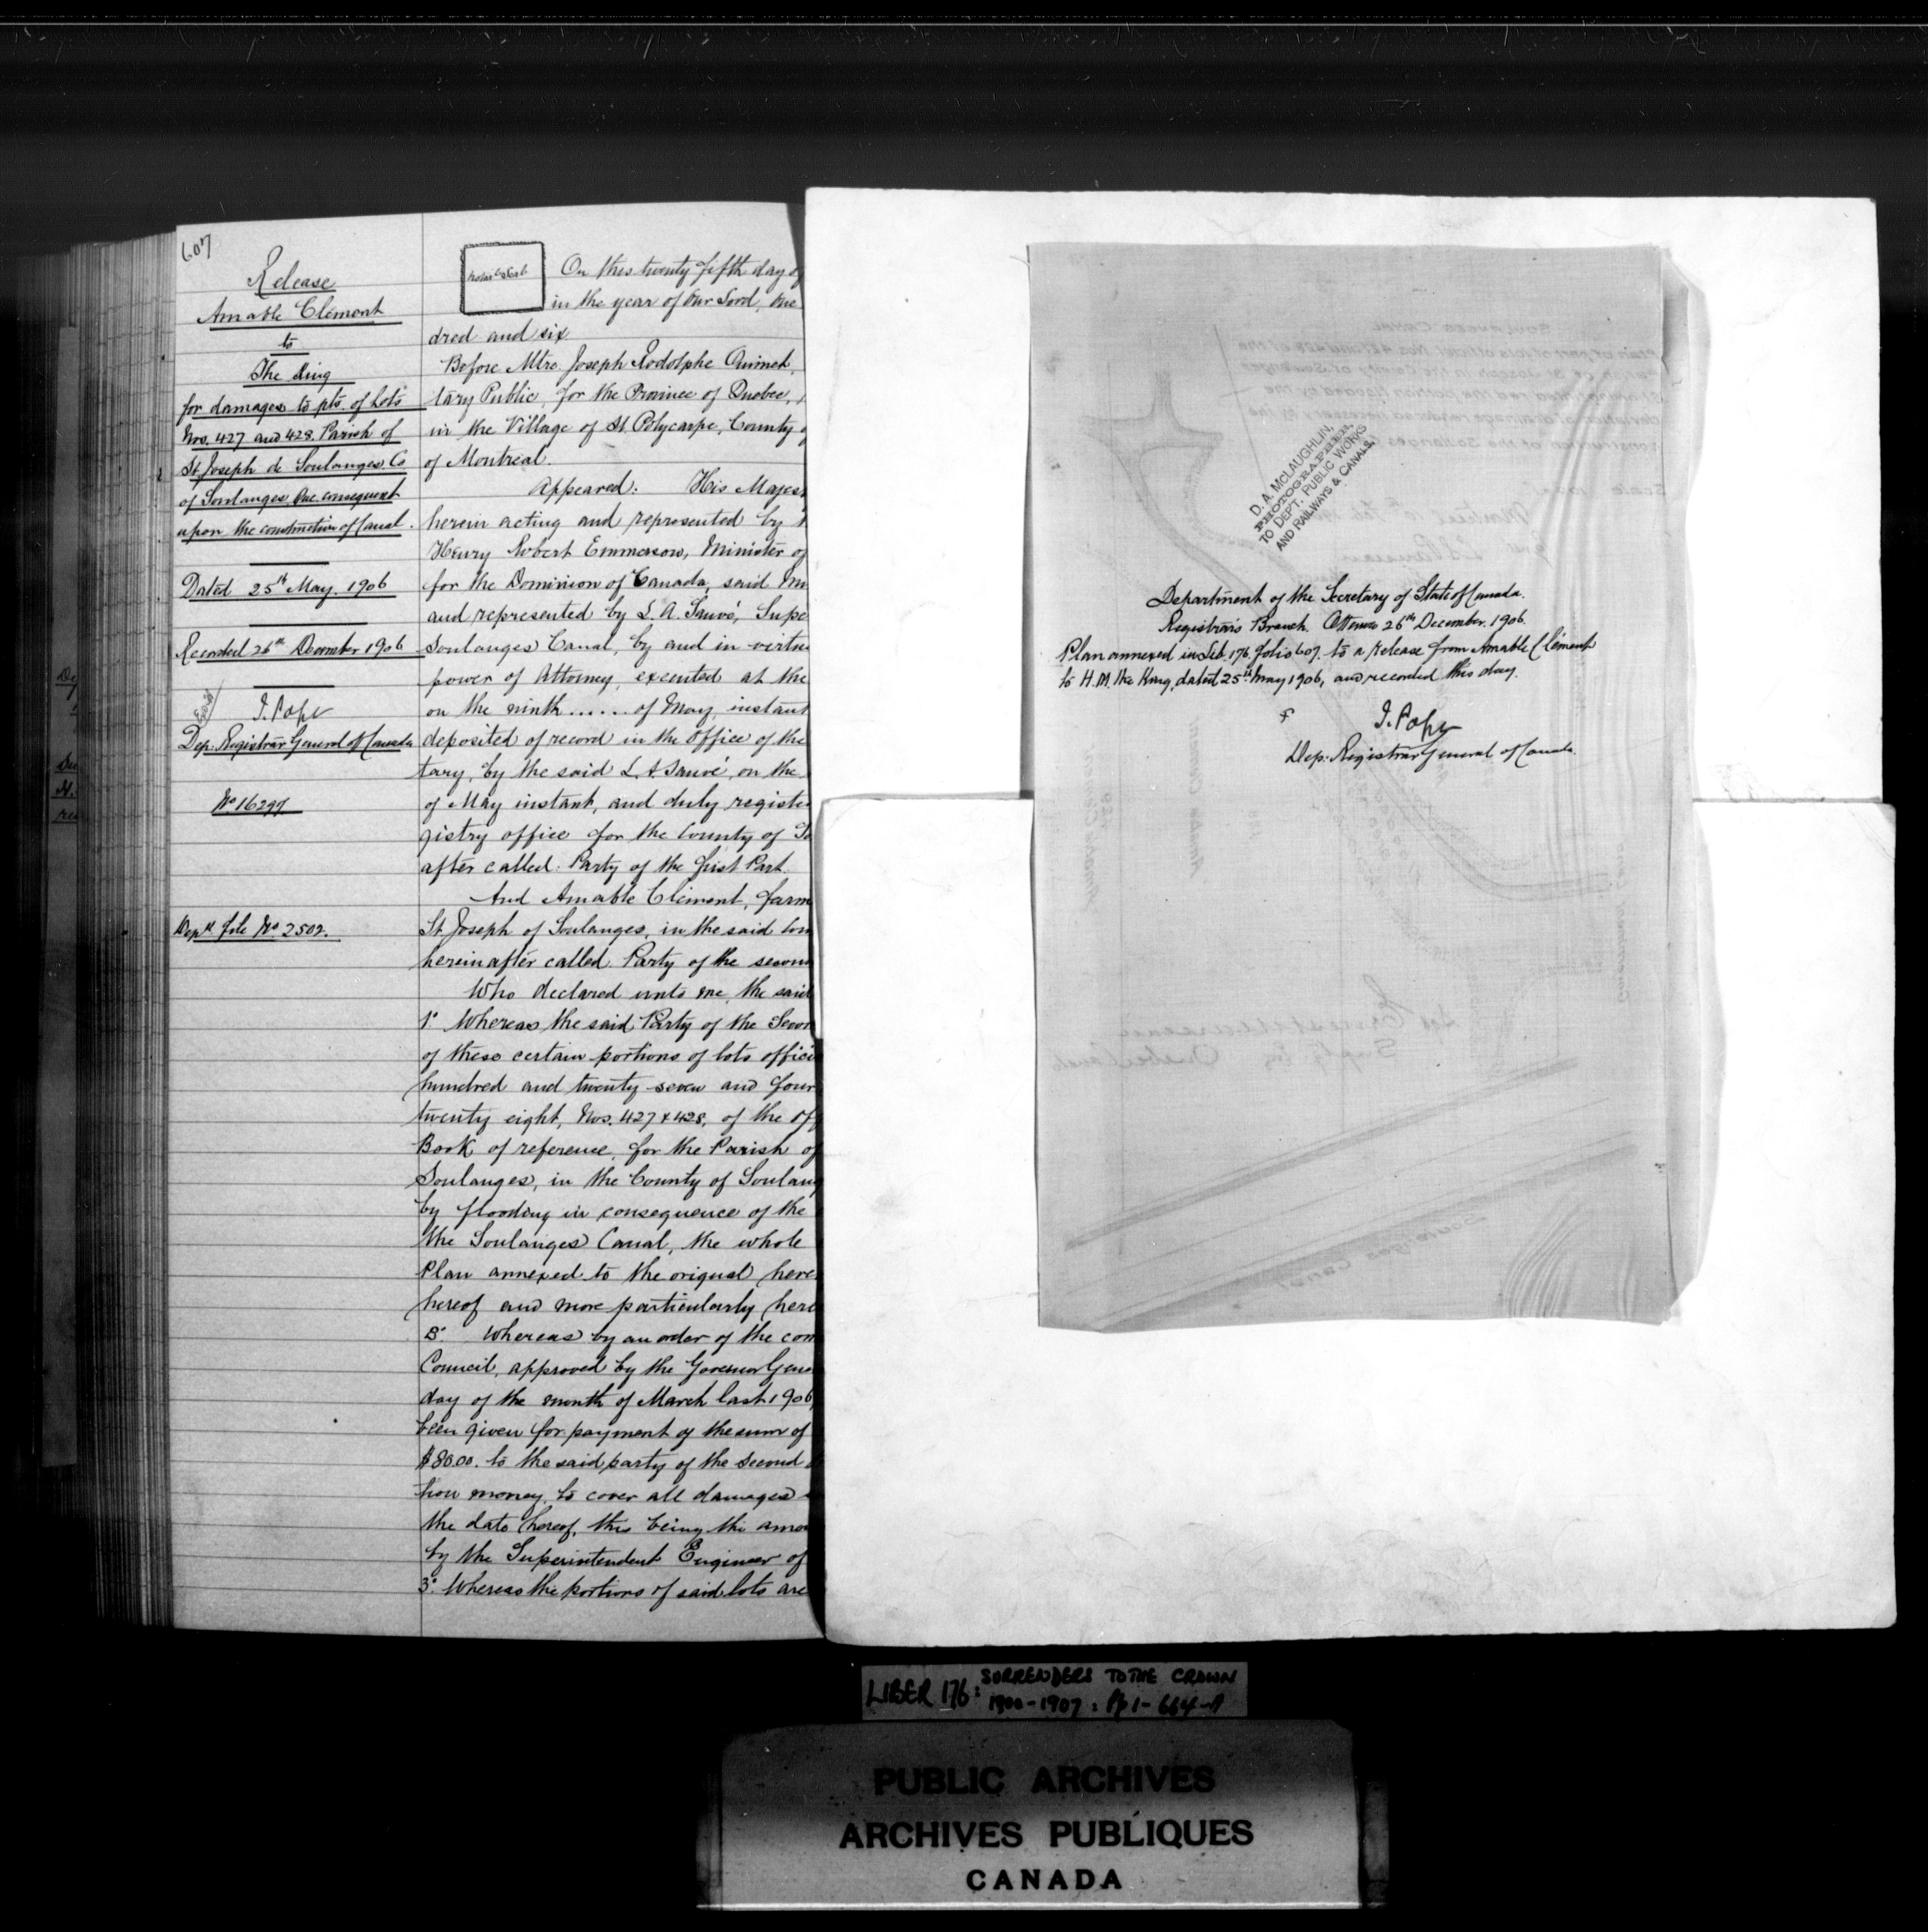 607
Release
Amable Clément
to
The King
for damages to pts. of Lots
Nos. 427 and 428. Parish of
St. Joseph de Soulanges, Co
of Soulanges, Que. consequent
upon the construction of Canal.
Dated 25th May, 1906
Recorded 26th December 1906
J. Pope
Dep: Registrar General of Canada
No 16297
Dept file No 2502.
On this twenty fifth day of
in the year of Our Lord, One
dred and six
Before Mtre. Joseph Rodolphe Ouimet,
tary Public, for the Province of Quebec,
in the Village of St Polycarpe, County of
of Montreal.
Appeared: His Majes
herein acting and represented by
Henry Robert Emmerson, Minister of
for the Dominion of Canada, said Mi
and represented by L. A. Sauvé, Supe
Soulanges Canal, by and in virtue
power of Attorney, executed at the
on the ninth ...... of May, instant
deposited of record in the Office of the
tary, by the said L. A. Sauvé, on the
of May instant, and duly registe
gistry office for the County of So
after called: Party of the first Part.
And Amable Clément, farm
St. Joseph of Soulanges, in the said Cou
hereinafter called. Party of the second
Who declared unto me, the said
1° Whereas the said Party of the Secon
of these certain portions of lots offici
hundred and twenty-seven and four
twenty eight, Nos. 427 & 428, of the Off
Book of reference, for the Parish of
Soulanges, in the County of Soulang
by flooding in consequence of the
the Soulanges Canal, the whole
Plan annexed to the original here
hereof and more particularly here
Whereas by an order of the
Council, approved by the Governor Gene
day of the month of March last 1906
been given for payment of the sum of
$80.00. to the said party of the second
tion money, to cover all damages
the date hereof, this being the amou
by the Superintendent Engineer of
3° Whereas the portions of said lots are
D. A. McLAUGHLIN,
PHOTOGRAPHER,
TO DEPT. PUBLIC WORKS
AND RAILWAYS & CANALS.
Department of the Secretary of State of Canada.
Registrar's Branch. Ottawa 26th December. 1906.
Plan annexed in Lib. 176. folio 607. to a Release from Amable Clément
to H. M. the King, dated 25th May 1906, and recorded this day.
J. Pope
Dep: Registrar General of Canada.
LIBER 176: SURRENDERS TO THE CROWN
1900-1907: Pp 1-664-A
PUBLIC ARCHIVES
ARCHIVES PUBLIQUES
CANADA